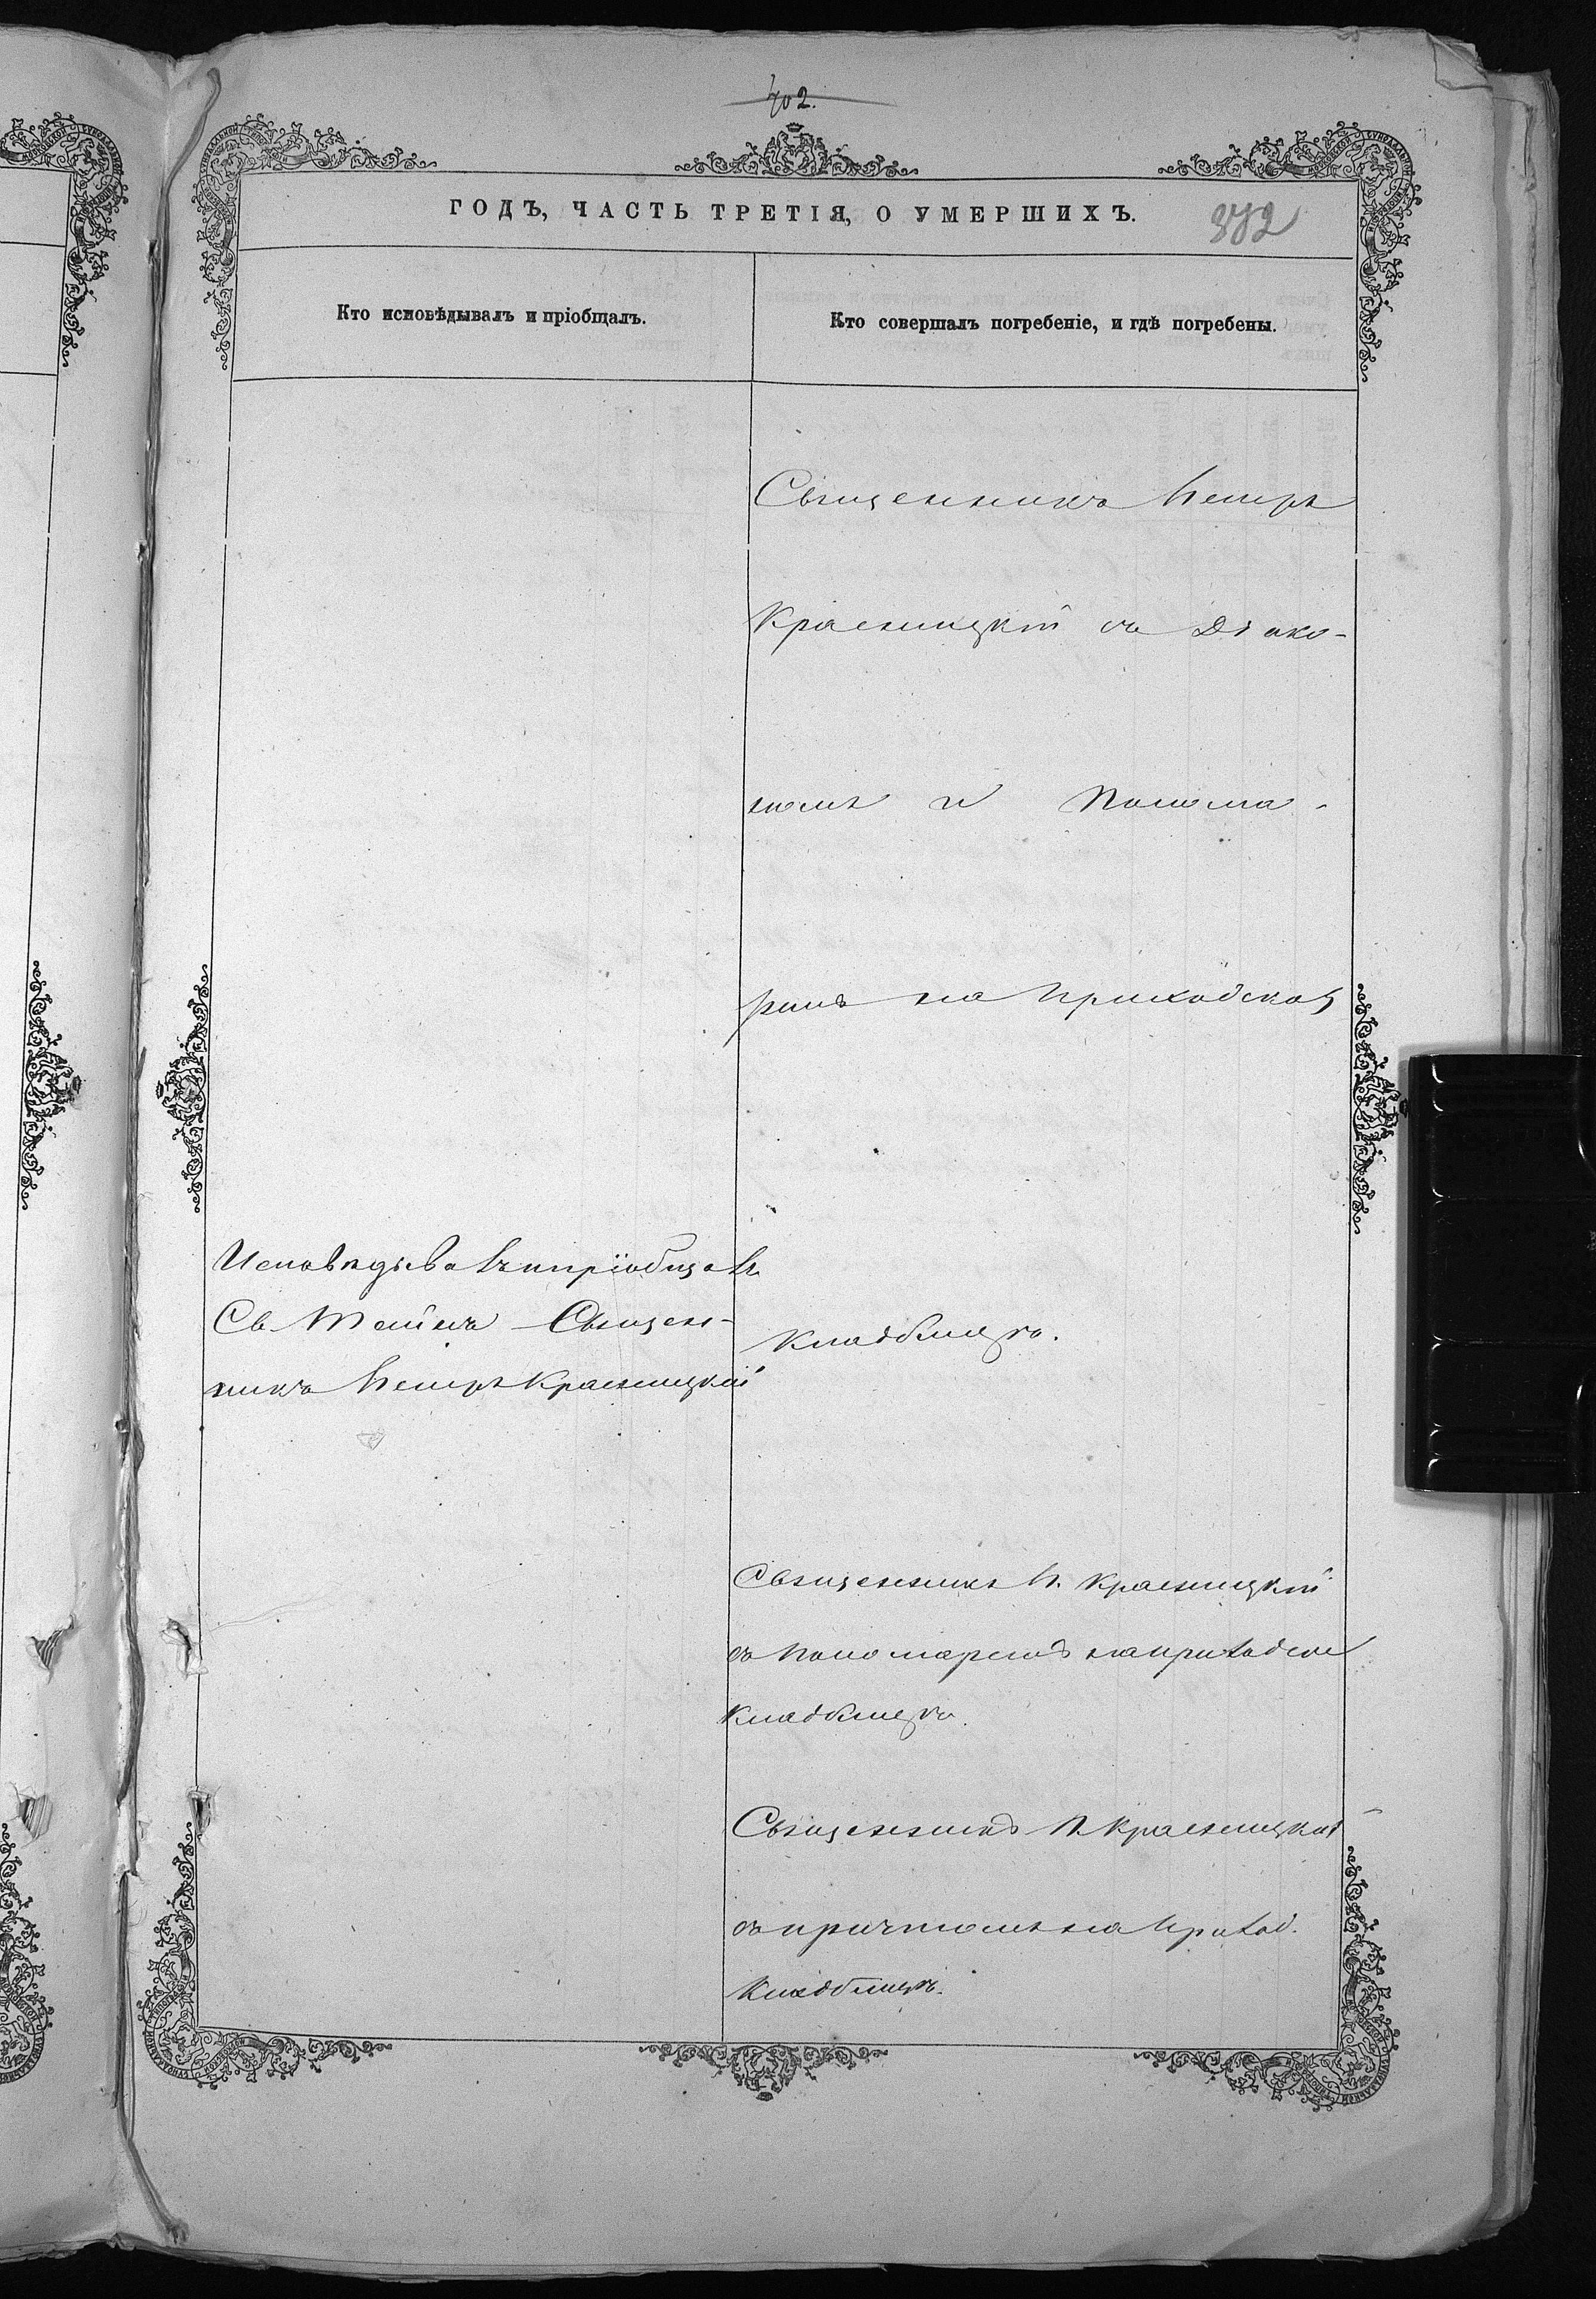 702.
ГОДЪ, ЧАСТЬ ТРЕТІЯ, О УМЕРШИХЪ.
372
Кто исповѣдывалъ и пріобщалъ.
Кто совершалъ погребеніе, и гдѣ погребены.
Священникъ Петръ
Красницкій съ Діако-
номъ и Понома-
ремъ на Приходском
Исповѣдывалъ и пріобщалъ
Св. Тайнъ Священ-
никъ Петръ Красницкій
кладбищѣ.
Священникъ П. Красницкій
съ пономаремъ на приходском
кладбищѣ.
Священникъ П. Красницкій
съ причтомъ на приход.
кладбищѣ.